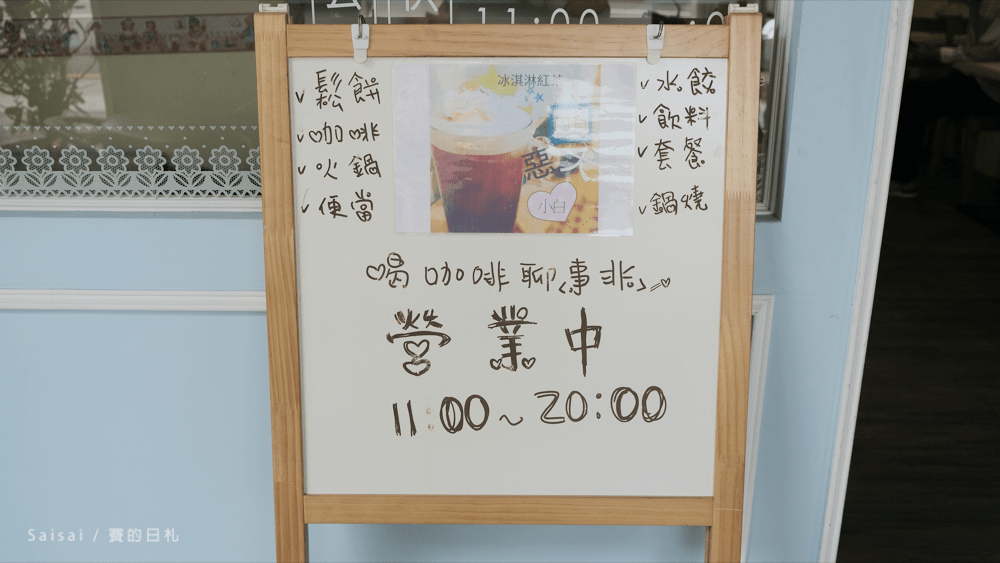 11:00
鬆餅
咖啡
火鍋
便當
冰淇淋紅茶
惡
小白
水餃
飲料
套餐
鍋燒
喝咖啡聊<事非>
營業中
11:00~20:00
Saisai / 賽的日札